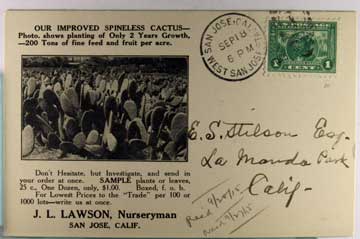 OUR IMPROVED SPINELESS CACTUS—
Photo. shows planting of Only 2 Years Growth,
—200 Tons of fine feed and fruit per acre.
Don't Hesitate, but Investigate, and send in
your order at once. SAMPLE plants or leaves,
25 c., One Dozen, only, $1.00. Boxed, f. o. b.
For Lowest Prices to the "Trade" per 100 or
1000 lots—write us at once.
J. L. LAWSON, Nurseryman
SAN JOSE, CALIF.
SAN JOSE, CAL.
SEP 18
6 PM
WEST SAN JOSE
1 CENT 1
E. S. Stilson Esq.
La Manda Park
Calif.
Recd 9/20/15
9/21/15